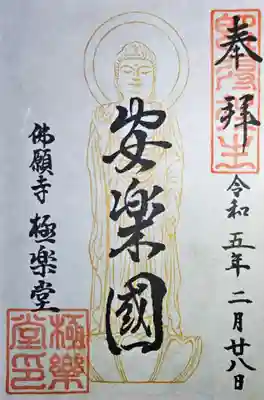 奉拝
令和五年二月廿八日
安楽國
佛願寺 極楽堂
極樂堂印